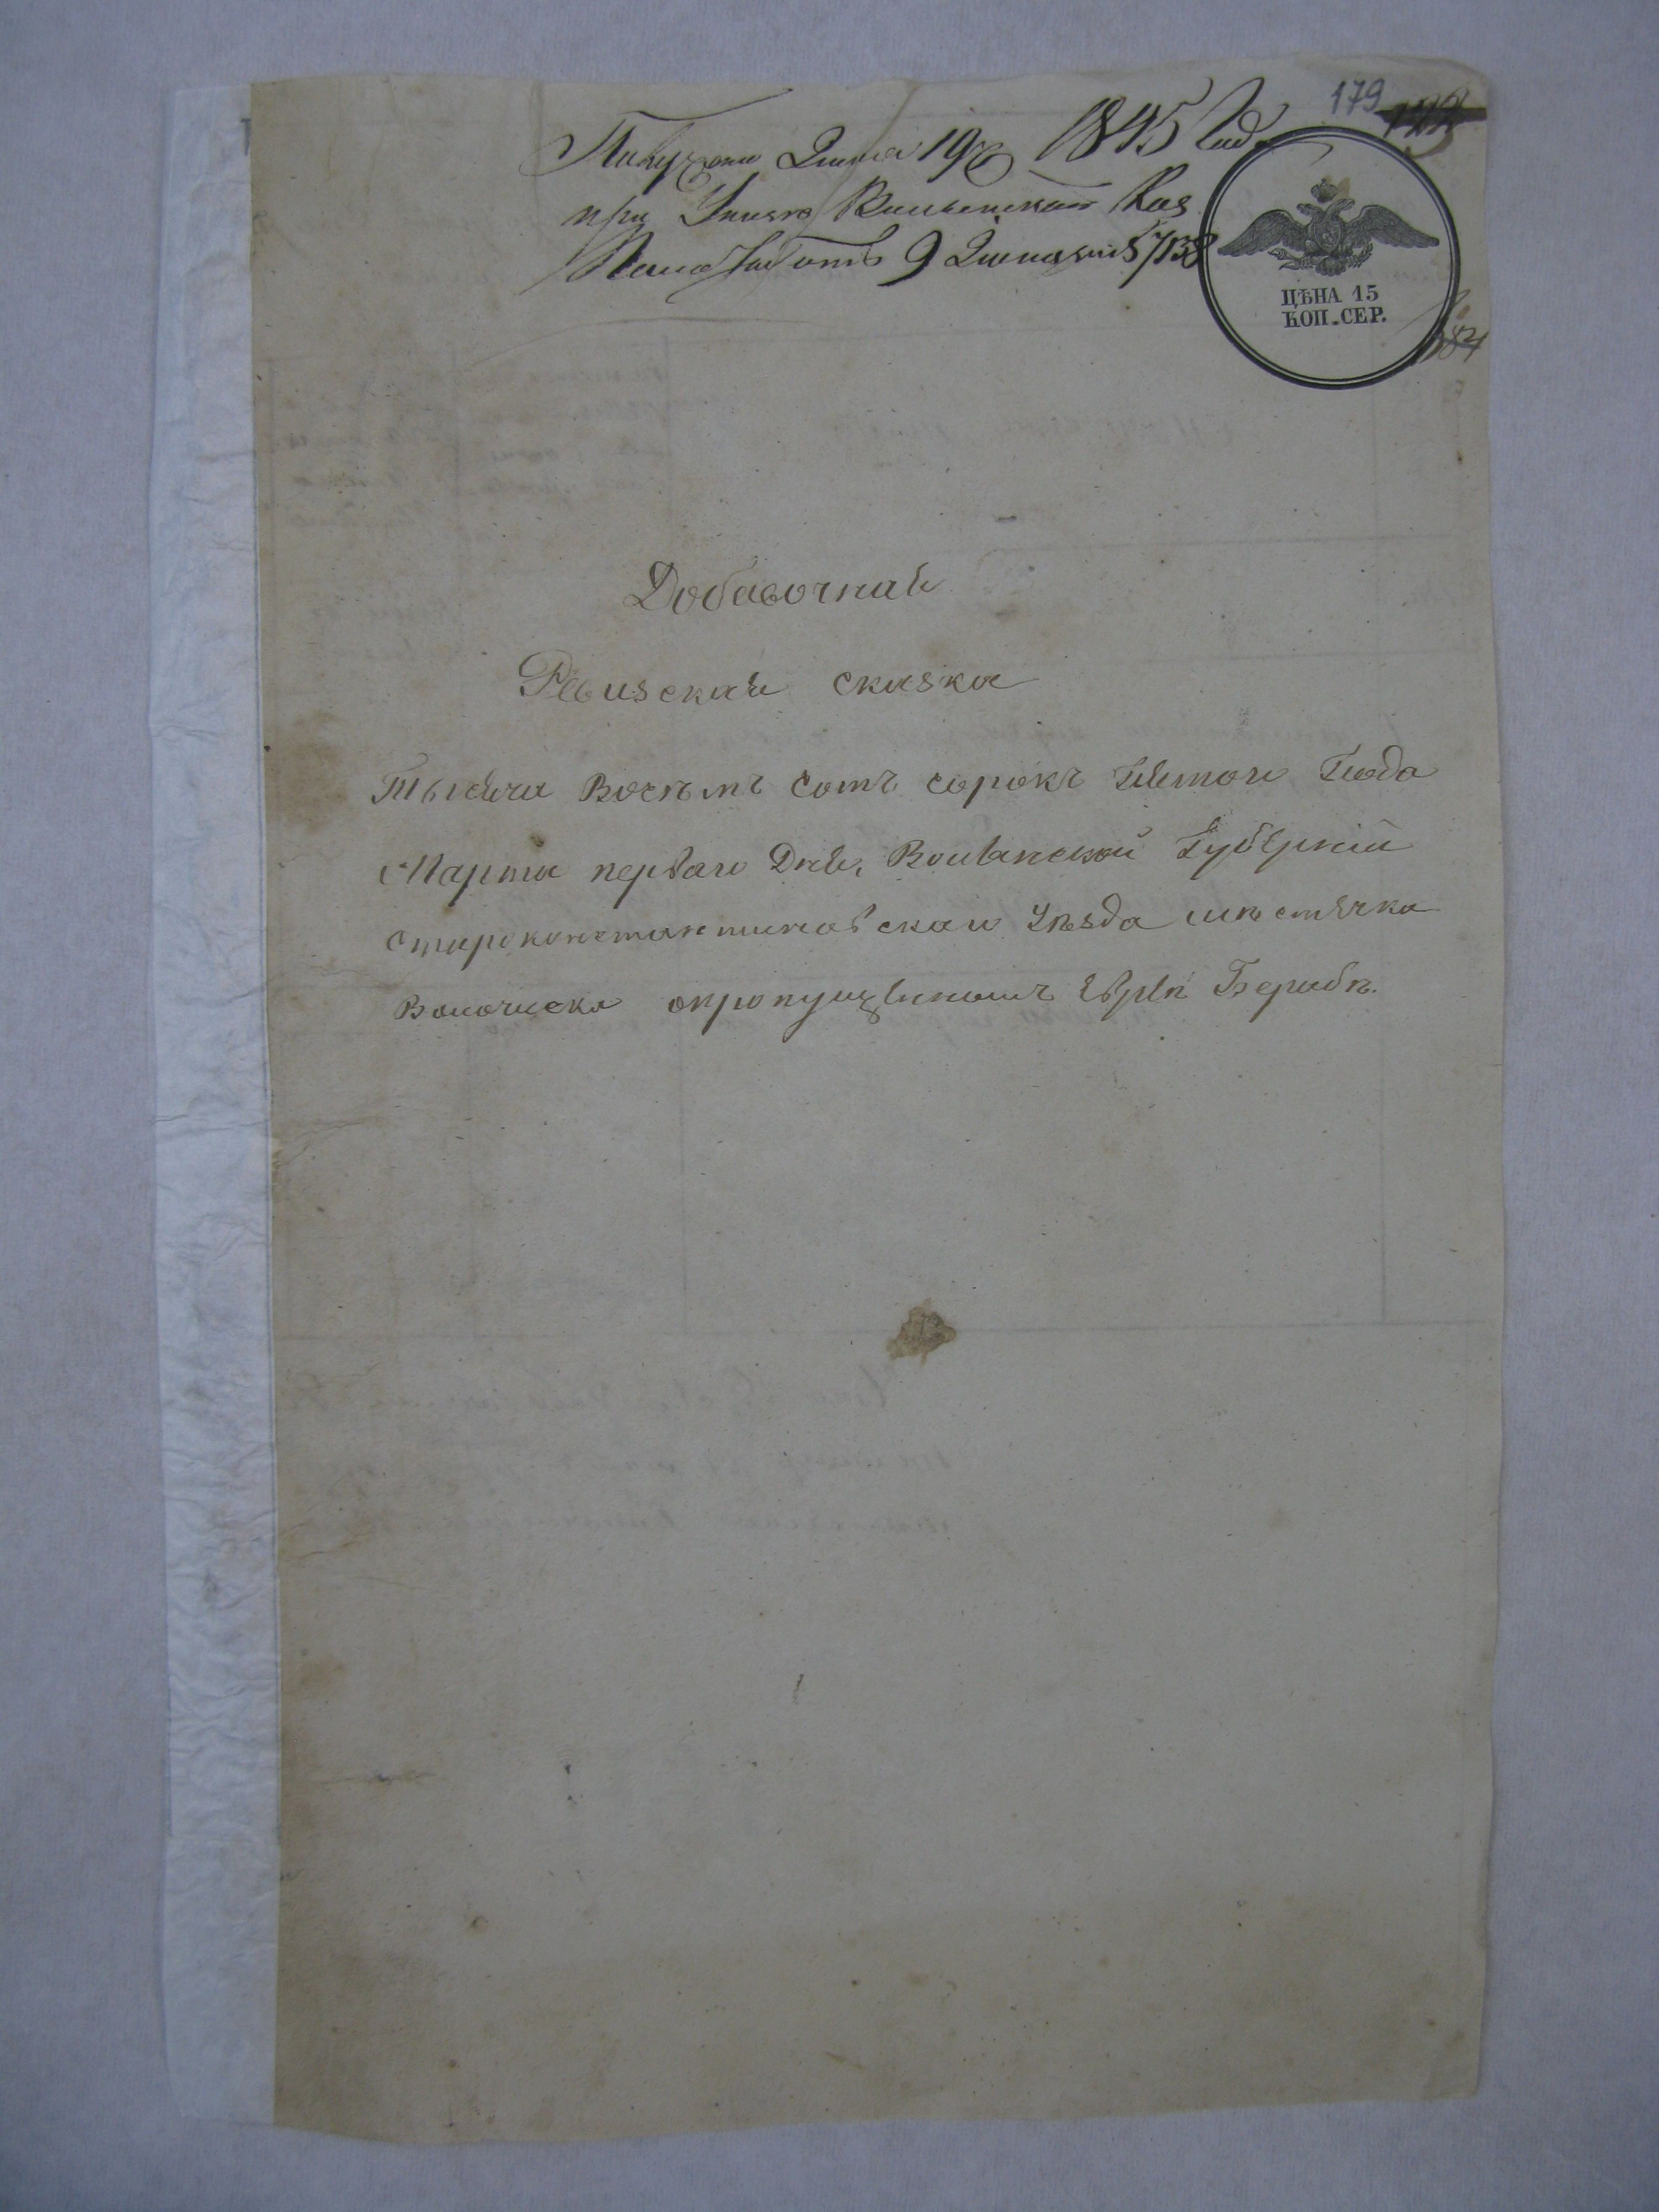 179
Получено Июня 19го 1845 Года
при Указе Волынской Каз
Палаты отъ 9 Июня 57138
ЦѢНА 15
КОП. СЕР.
184
Добавочная
Ревизская сказка
Тысяча Восѣмъ Сотъ сорокъ Пятого Года
Марта первого Дня, Волынской Губерніи
Староконстантиновского Уѣзда мѣстечка
Волочиска опропущеннымъ Еврѣ